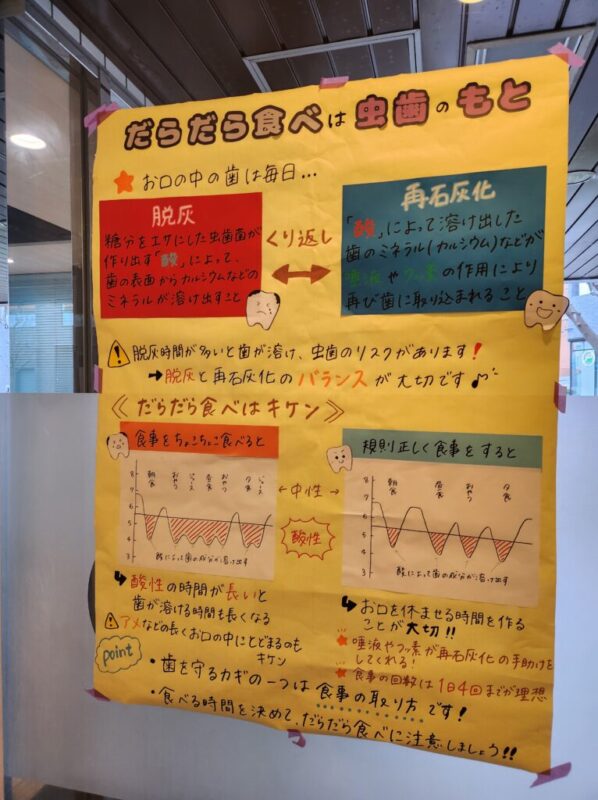 だらだら食べは虫歯のもと
お口の中の歯は毎日…
脱灰
糖分をエサにした虫歯菌が
作り出す「酸」によって、
歯の表面からカルシウムなどの
ミネラルが溶け出すこと
くり返し
再石灰化
「酸」によって溶け出した
歯のミネラル(カルシウム)などが
唾液やフッ素の作用により
再び歯に取り込まれること
脱灰時間が多いと歯が溶け、虫歯のリスクがあります!
→脱灰と再石灰化のバランスが大切です♪
《だらだら食べはキケン》
食事をちょこちょこ食べると
8
7
6
5
4
3
朝食
おやつ
ジュース
昼食
おやつ
夕食
ジュース
酸によって歯の成分が溶け出す
←中性→
酸性
規則正しく食事をすると
8
7
6
5
4
3
朝食
昼食
おやつ
夕食
酸によって歯の成分が溶け出す
酸性の時間が長いと
歯が溶ける時間も長くなる
アメなどの長くお口の中にとどまるのも
キケン
お口を休ませる時間を作る
ことが大切!!
唾液やフッ素が再石灰化の手助けを
してくれる!
食事の回数は1日4回までが理想
point
・歯を守るカギの一つは食事の取り方です!
・食べる時間を決めて、だらだら食べに注意しましょう!!